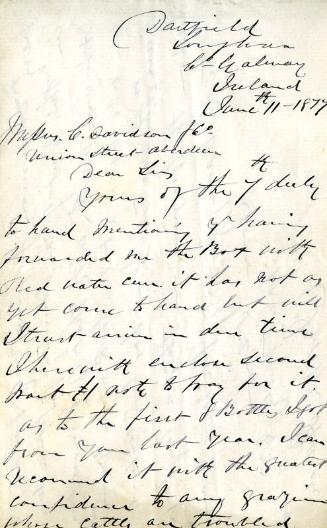 Dartfield
Loughrea
Co Galway
Ireland
June 11th - 1877
Messrs. C. Davidson & Co
Union Street Aberdeen
Dear Sirs
Yours of the 7th duly
to hand mentioning yr having
forwarded me the Box with
Red water cure it has not as
yet come to hand but will
I trust arrive in due time
I herewith enclose second
part £1 note to pay for it.
as to the first 8 Bottles I got
from you last year. I can
recommend it with the greatest
confidence to any grazier
whose cattle are troubled